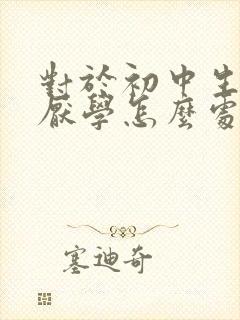 對於初中生
厭學怎麼處
塞迪奇